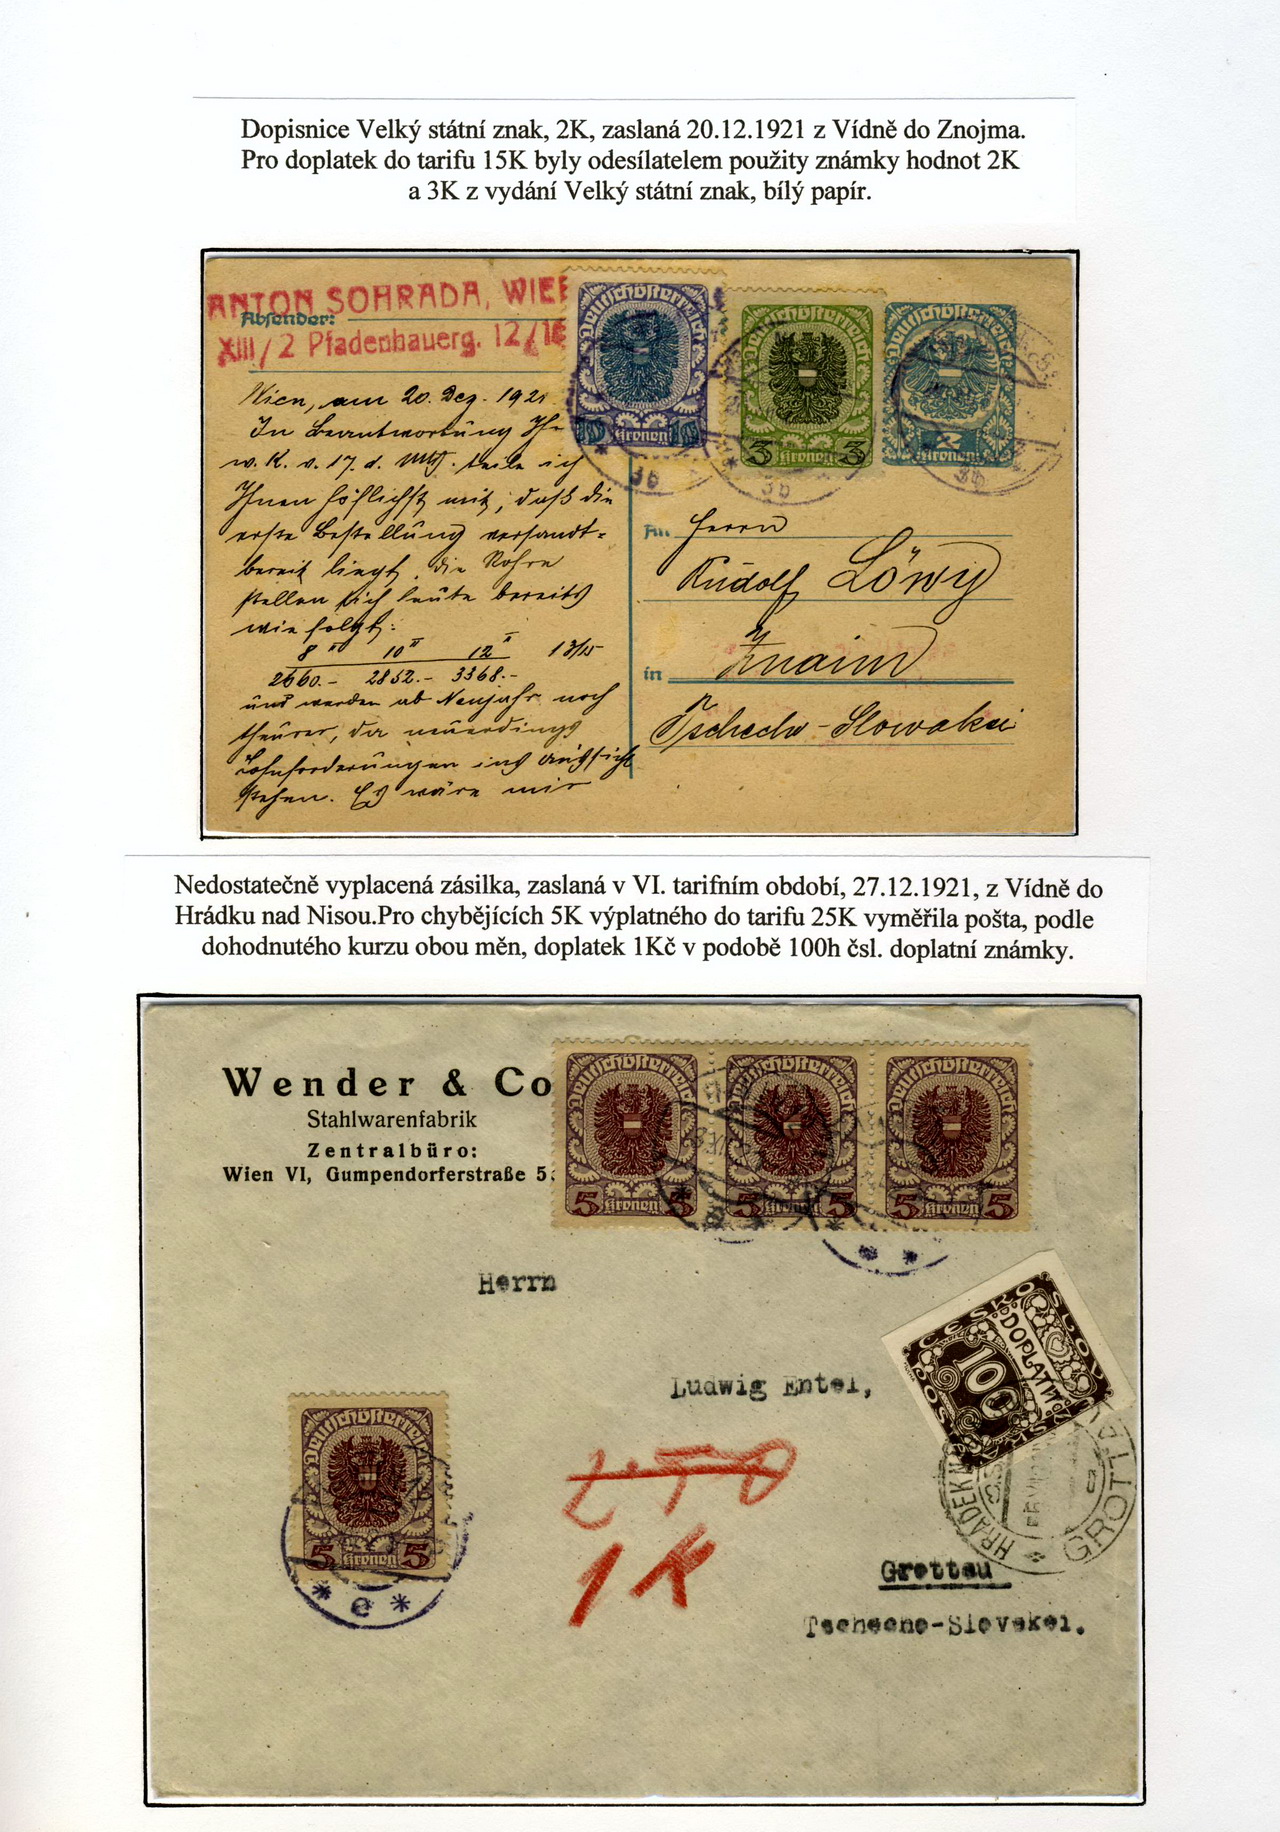 Dopisnice Velký státní znak, 2K, zaslaná 20.12.1921 z Vídně do Znojma.
Pro doplatek do tarifu 15K byly odesílatelem použity známky hodnot 2K
a 3K z vydání Velký státní znak, bílý papír.
ANTON SOHRADA, WIE
Absender:
XIII/2 Pfadenhauerg. 12/16
Deutschösterreich
10 Kronen 10
Deutschösterreich
3 Kronen 3
Deutschösterreich
2
Kronen
3b
3b
3b
Wien, am 20. Dez. 1921
In Beantwortung Ihr
w. K. v. 17. d. Mts. teile ich
Ihnen höflichst mit, daß die
erste Bestellung versandt-
bereit liegt, die Rohre
stellen sich heute bereits
wie folgt:
8" 10" 12" 13/15
2660.- 2852.- 3368.-
und werden ab Neujahr noch
theurer, da neuerdings
Lohnforderungen in Aussicht
stehen. Es wäre mir
An Herrn
Rudolf Löwy
in Znaim
Tschecho-Slowakei
Nedostatečně vyplacená zásilka, zaslaná v VI. tarifním období, 27.12.1921, z Vídně do
Hrádku nad Nisou.Pro chybějících 5K výplatného do tarifu 25K vyměřila pošta, podle
dohodnutého kurzu obou měn, doplatek 1Kč v podobě 100h čsl. doplatní známky.
Wender & Co
Stahlwarenfabrik
Zentralbüro:
Wien VI, Gumpendorferstraße 5
Deutschösterreich
5 Kronen 5
Deutschösterreich
5 Kronen 5
Deutschösterreich
5 Kronen 5
Herrn
ČESKOSLOVENSKÁ
POŠTA
DOPLATNÍ
100
Ludwig Entel,
Deutschösterreich
5 Kronen 5
* e *
2.50
1 K
HRÁDEK N
GROTTAU
Grottau
Tschecho-Slovakei.